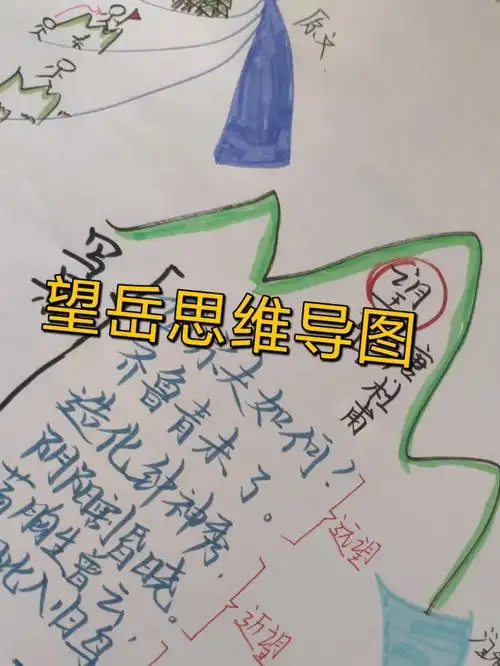 原文
望
唐 杜甫
写
望岳思维导图
宗夫如何？
齐鲁青未了。
造化钟神秀，
阴阳割昏晓。
荡胸生曾云，
入归鸟
远望
近望